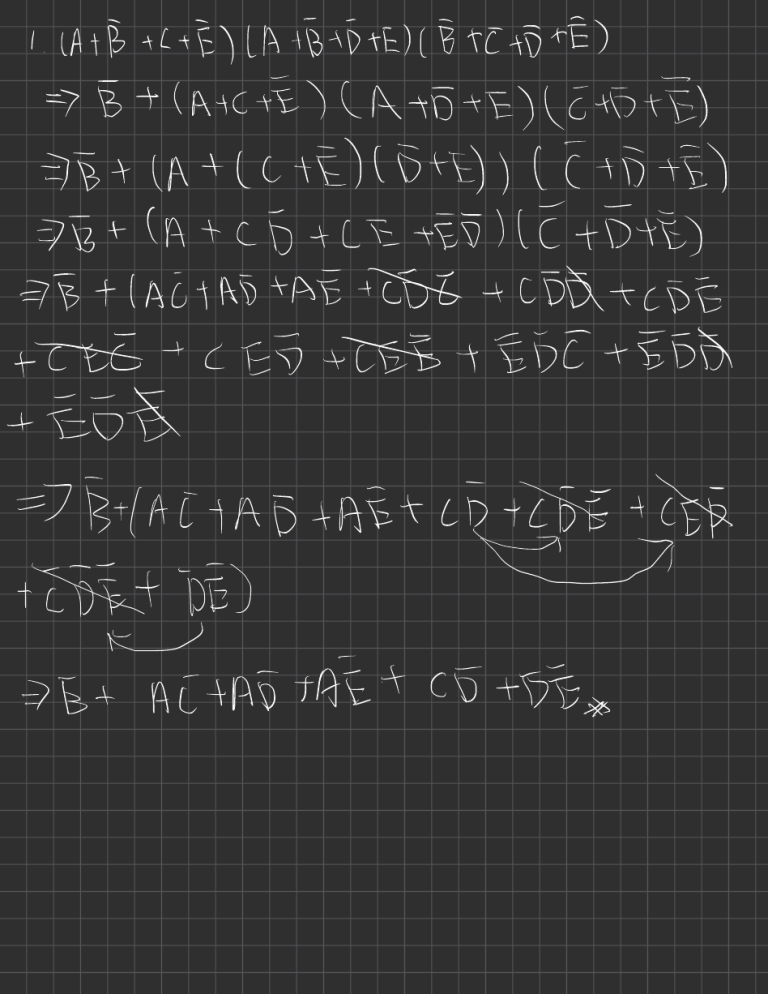 1. (A+B̅+C+E̅)(A+B̅+D̅+E)(B̅+C̅+D̅+E̅)
⇒ B̅+(A+C+E̅)(A+D̅+E)(C̅+D̅+E̅)
⇒ B̅+(A+(C+E̅)(D̅+E))(C̅+D̅+E̅)
⇒ B̅+(A+CD̅+CE+E̅D̅)(C̅+D̅+E̅)
⇒ B̅+(AC̅+AD̅+AE̅+CD̅C̅+CD̅D̅+CD̅E̅
+CEC̅+CED̅+CEE̅+E̅D̅C̅+E̅D̅D̅
+E̅D̅E̅
⇒ B̅+(AC̅+AD̅+AE̅+CD̅+CD̅E̅+CED̅
+C̅D̅E̅+D̅E̅)
⇒ B̅+AC̅+AD̅+AE̅+CD̅+D̅E̅